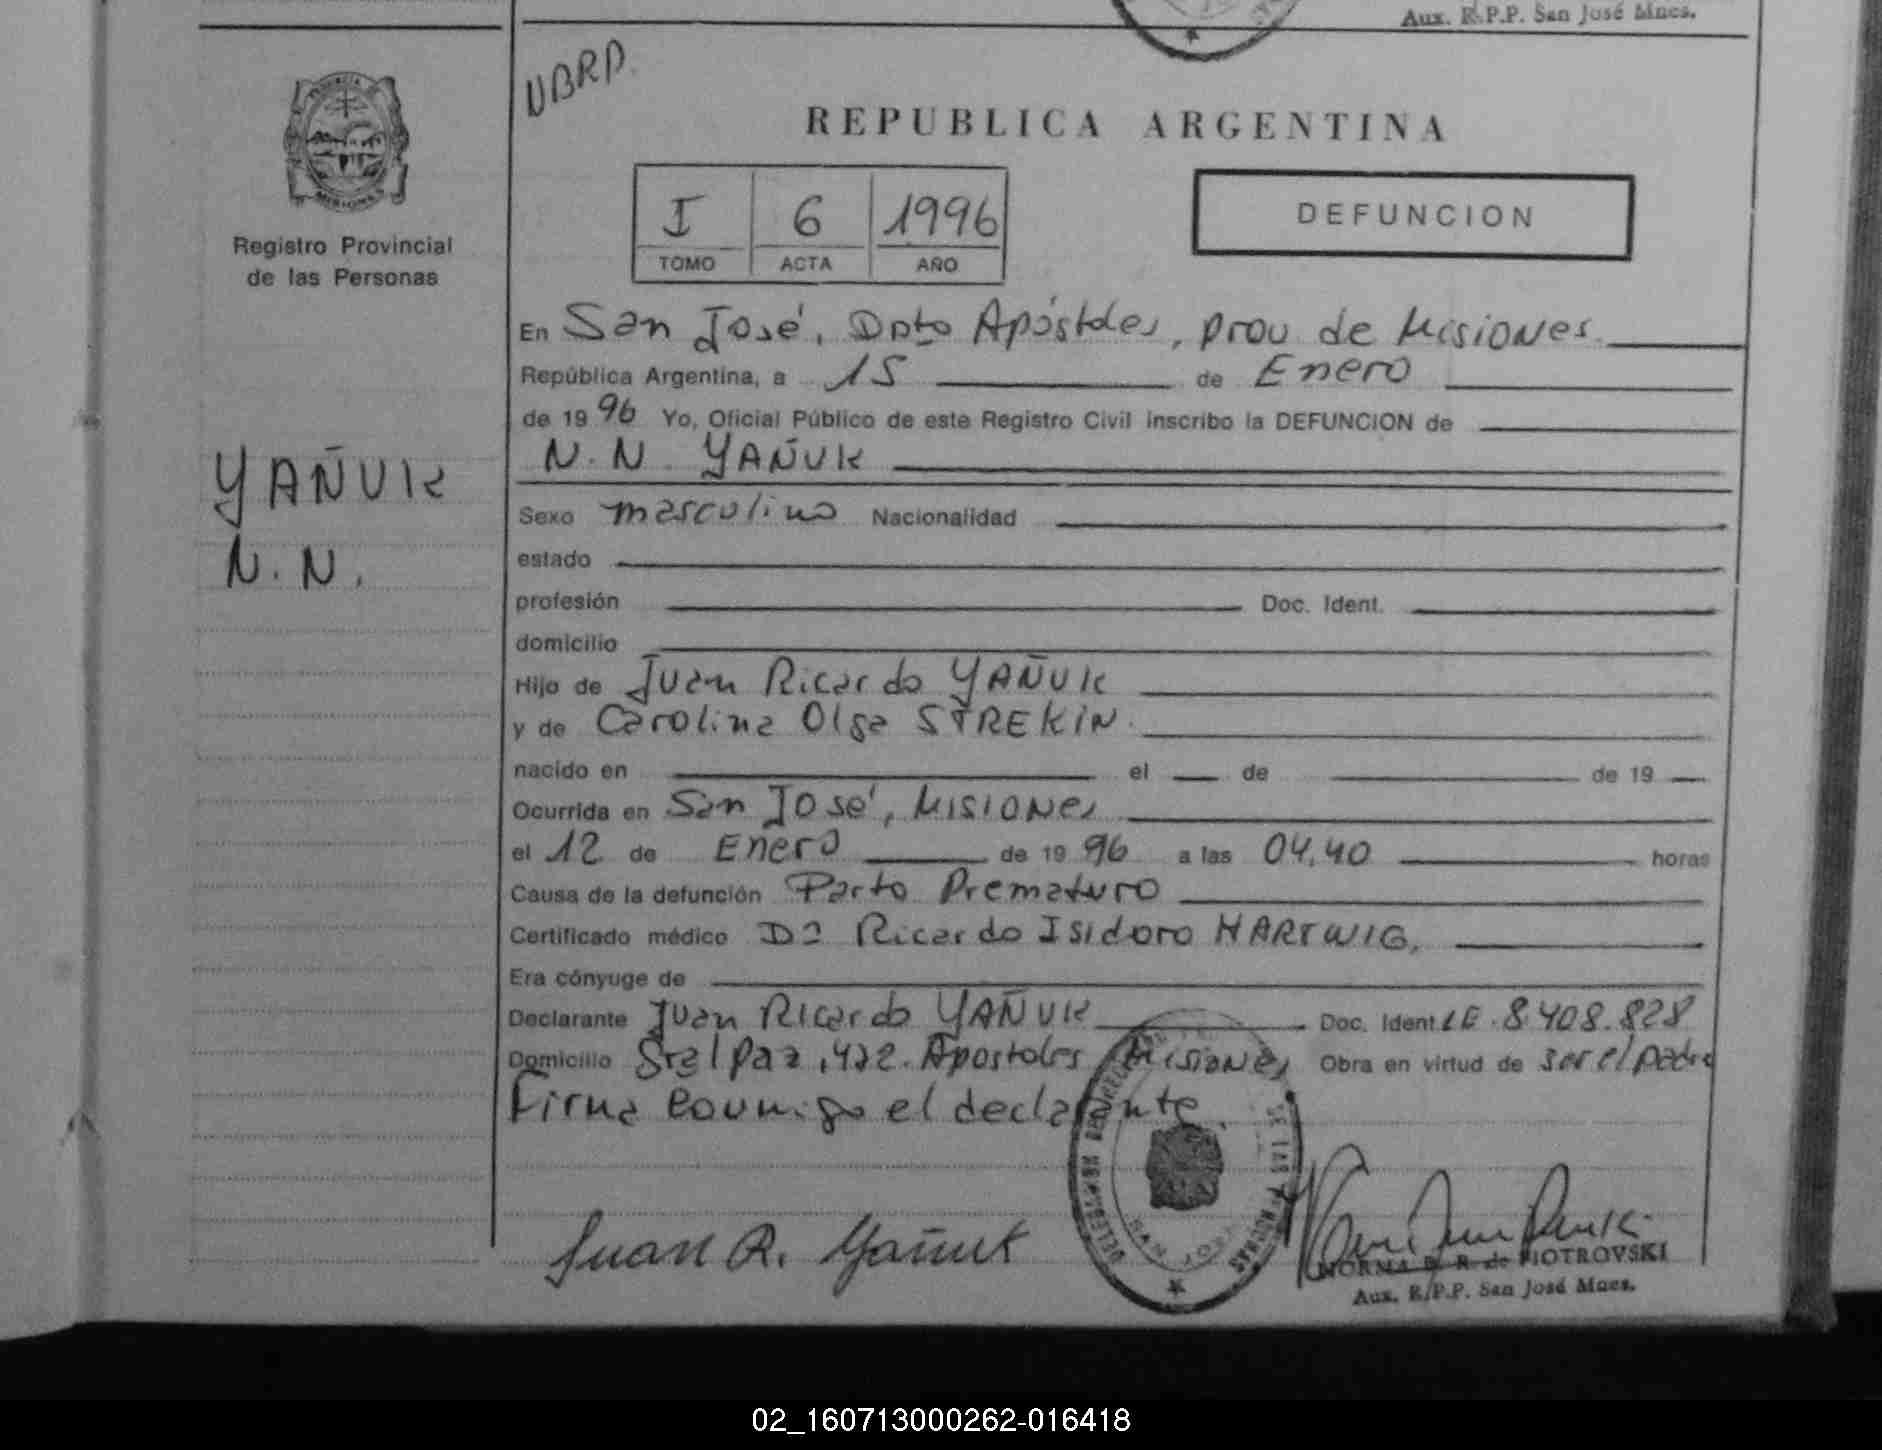 Aux. R.P.P. San José Mnes.
UBRD.
REPUBLICA ARGENTINA
I 6 1996
TOMO ACTA AÑO
DEFUNCION
Registro Provincial
de las Personas
YAÑUK
N.N.
En San José, Dpto Apóstoles, prov de Misiones.
República Argentina, a 15 de Enero
de 1996 Yo, Oficial Público de este Registro Civil inscribo la DEFUNCION de
N.N YAÑUK
Sexo masculino Nacionalidad
estado
profesión Doc. Ident.
domicilio
Hijo de Juan Ricardo YAÑUK
y de Carolina Olga STREKIN.
nacido en el de de 19
Ocurrida en San José, Misiones
el 12 de Enero de 1996 a las 04,40 horas
Causa de la defunción Parto Prematuro
Certificado médico Dº Ricardo Isidoro HARTWIG,
Era cónyuge de
Declarante Juan Ricardo YAÑUK Doc. Ident. LE. 8.408.828
Domicilio Gral Paz, 422. Apostoles Misiones Obra en virtud de ser el padre
Firma conmigo el declarante.
Juan R. Yañuk
DELEGACION DE LAS PERSONAS
SAN JOSE
NORMA B. R. de PIOTROVSKI
Aux. R.P.P. San José Mnes.
02_160713000262-016418